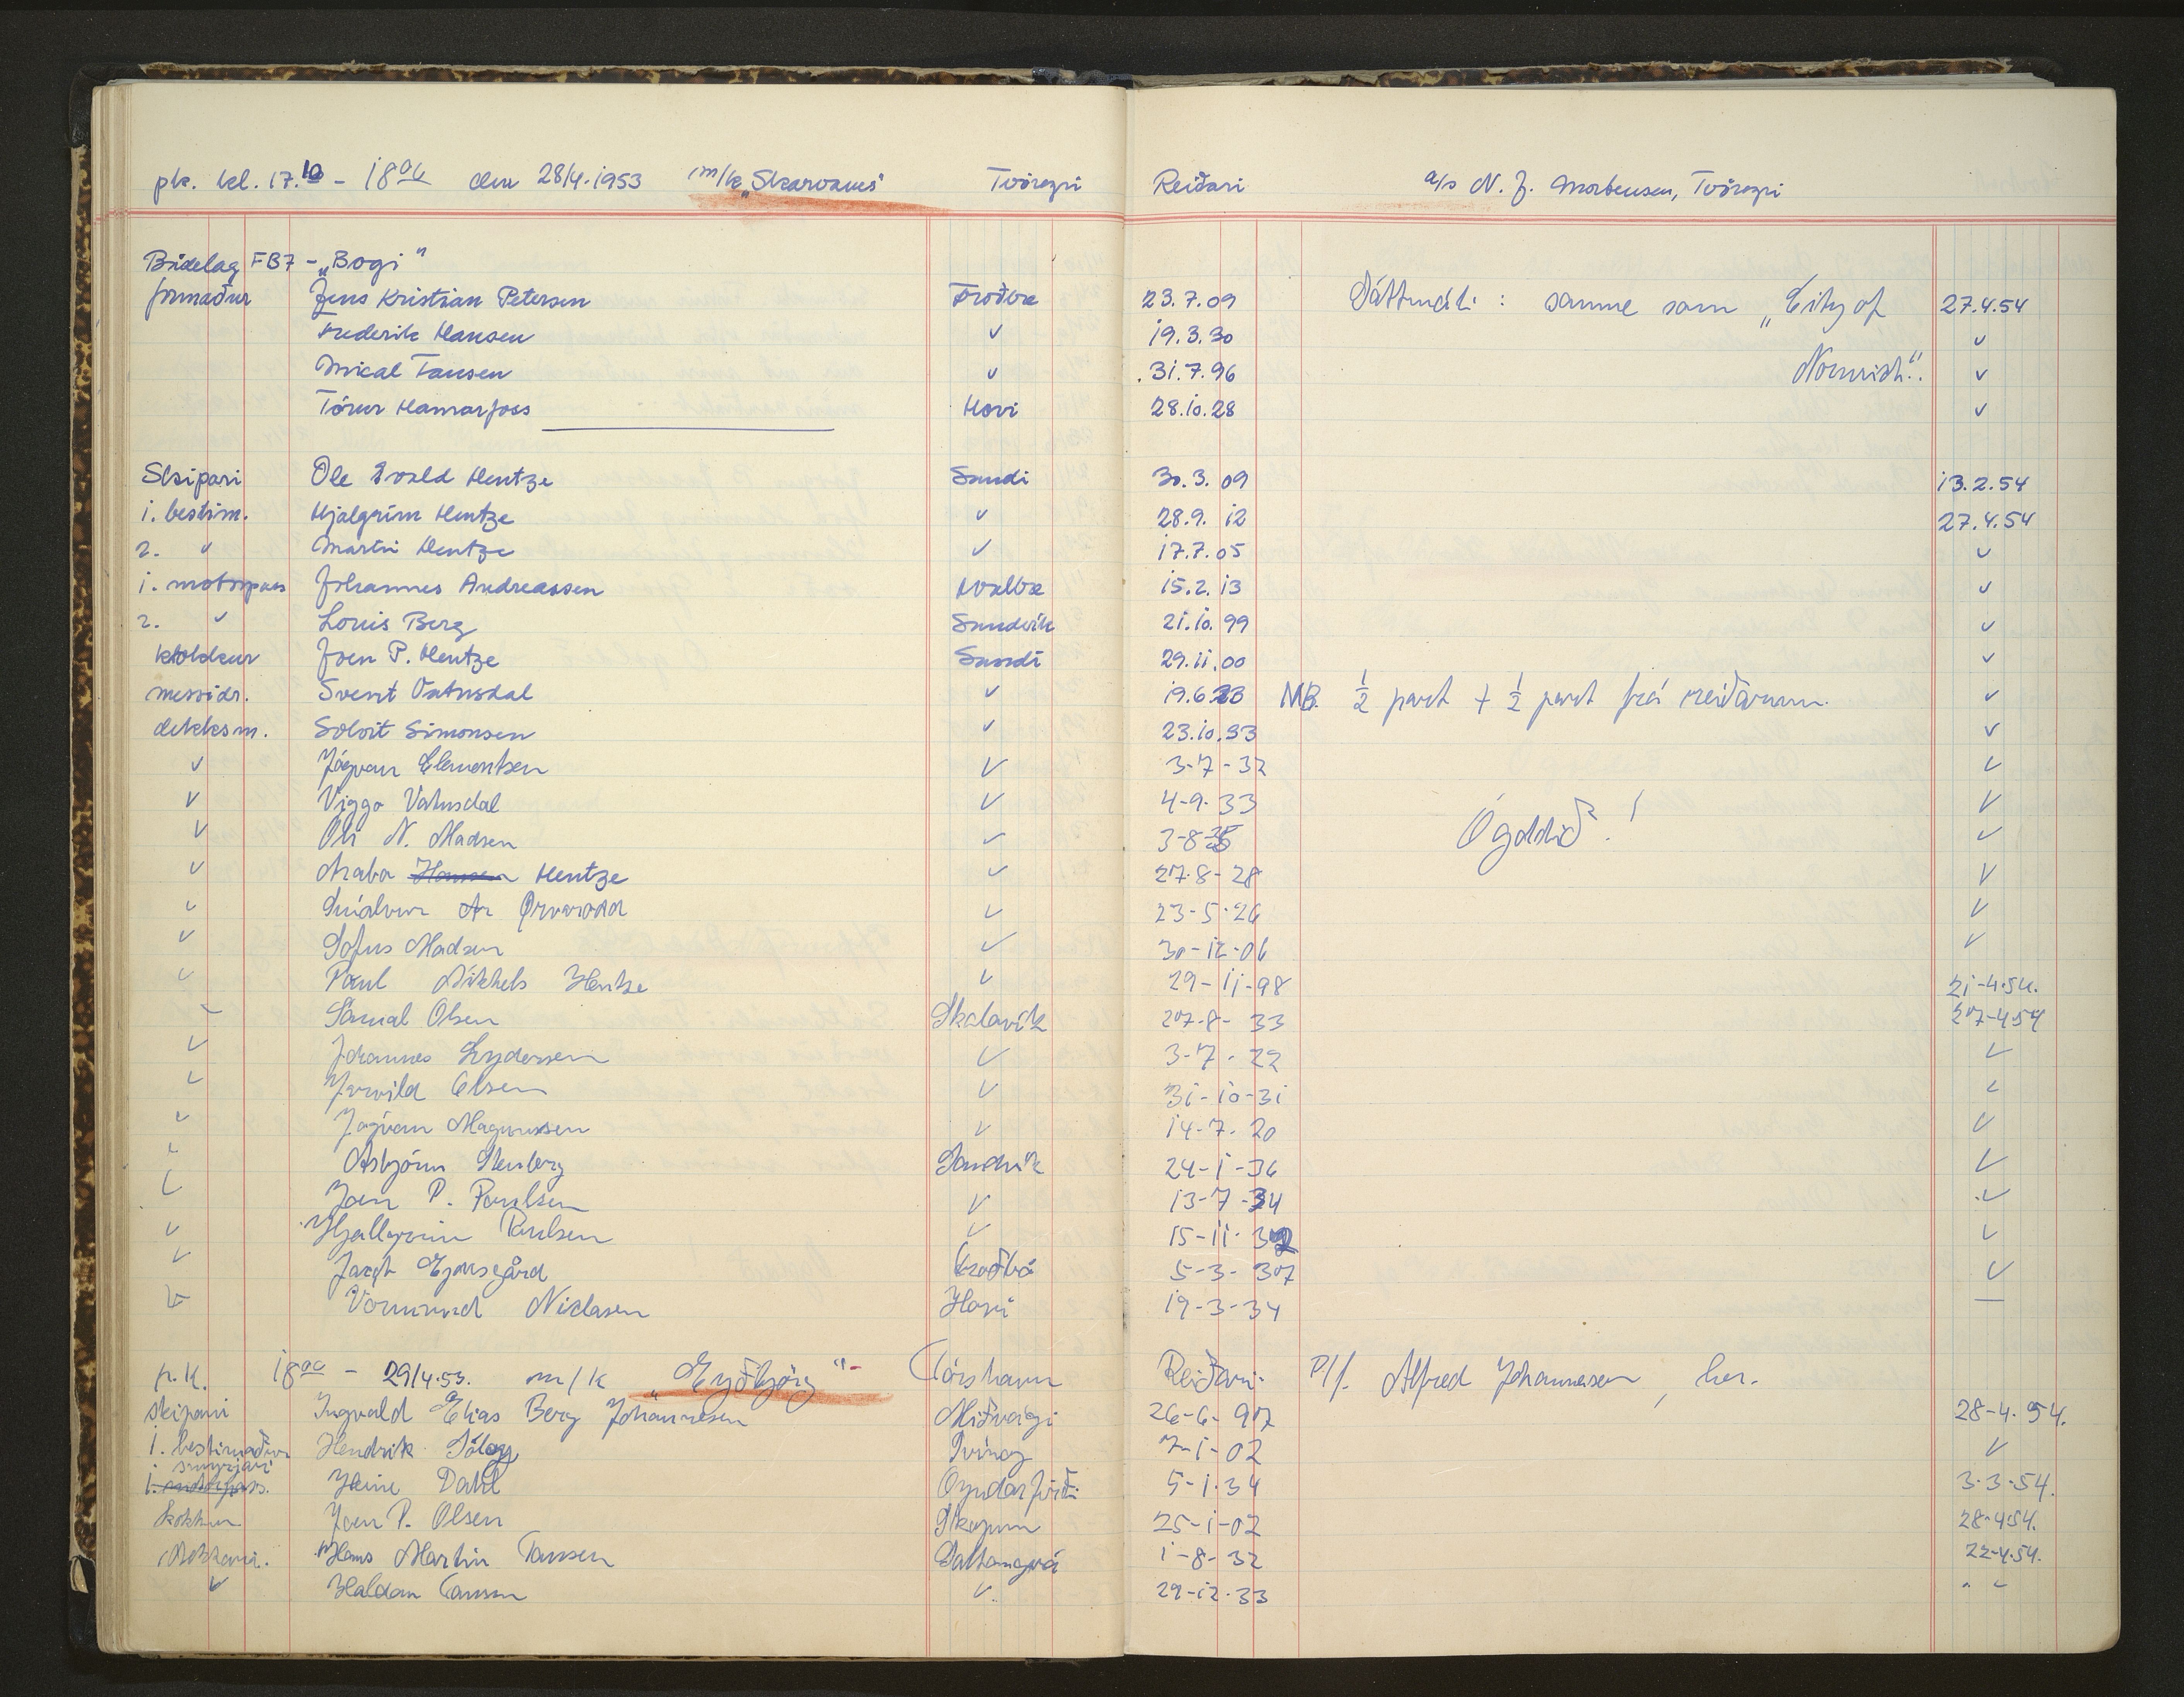 pk. kl. 17.10 - 18oo den 28/4-1953 m/k „Skarvanes" Tvöroyri Reiðari a/s N. J. Mortensen, Tvöroyri
Bådelag FB7 - „Bogi"
formaður Jens Kristian Petersen Froðbæ 23.7.09 Sáttmáli: samme som „City of 27.4.54
Frederik Hansen v 19.3.30 v
Mical Tausen v 31.7.96 Norwich". v
Tórur Hamarfoss Hovi 28.10.28 v
Skipari Ole Evald Hentze Sandi 30.3.09 13.2.54
1. bestim. Hjalgrím Hentze v 28.9.12 27.4.54
2. v Martin Hentze v 17.7.05 v
1. motorpass Johannes Andreassen Hvalbø 15.2.13 v
2. v Louis Berg Sandvík 21.10.99 v
kokkur Joen P. Hentze Sandi 29.11.00 v
messidr. Svent Vatnsdal v 19.6.33 NB. ½ part + ½ part frá reiðarum. v
dekksm. Solvit Simonsen v 23.10.33 v
v Jógvan Clementsen v 3-7-32 v
v Viggo Vatnsdal v 4-9-33 v
v Oli N. Madsen v 3-8-35 Ógoldið! v
v Hansen Hentze v 27-8-28 v
v v 23-5-26 v
v Sofus Madsen v 30-12-06 v
v Poul Mikkels Hentze v 29-11-98 21-4-54.
v Sámal Olsen Skálavík 27-8-33 27-4-54
v Johannes Lydersen v 3-7-22 v
v Olsen v 31-10-31 v
v Jógvan Magnussen v 14-7-20 v
v Asbjörn Stenberg Sandvík 24-1-36 v
v Joen P. Poulsen v 13-7-34 v
v Hjallgrím Poulsen v 15-11-32 v
v Jacob Froðbá 5-3-37 v
v Vormund Niclasen Hovi 19-3-34 —
p.k. 18oo - 29/4.53. m/k „Eyðbjörg" Tórshavn Reiðari: P/f. Alfred Johannesen, her.
skipari Ingvald Elias Berg Johannesen Miðvági 26-6-97 28-4.54.
1. bestimaður Hendrik Tvöroy 7-1-02 v
smyrjari
1. motorpass. Heine Dahl Oyndarfirði 5-1-34 3-3-54.
kokkur Joen P. Olsen Skopun 25-1-02 28-4-54.
dekksm. Hans Martin Tausen Saltangará 1-8-32 22-4-54.
v Haldan Tausen v 29-12-33 " v